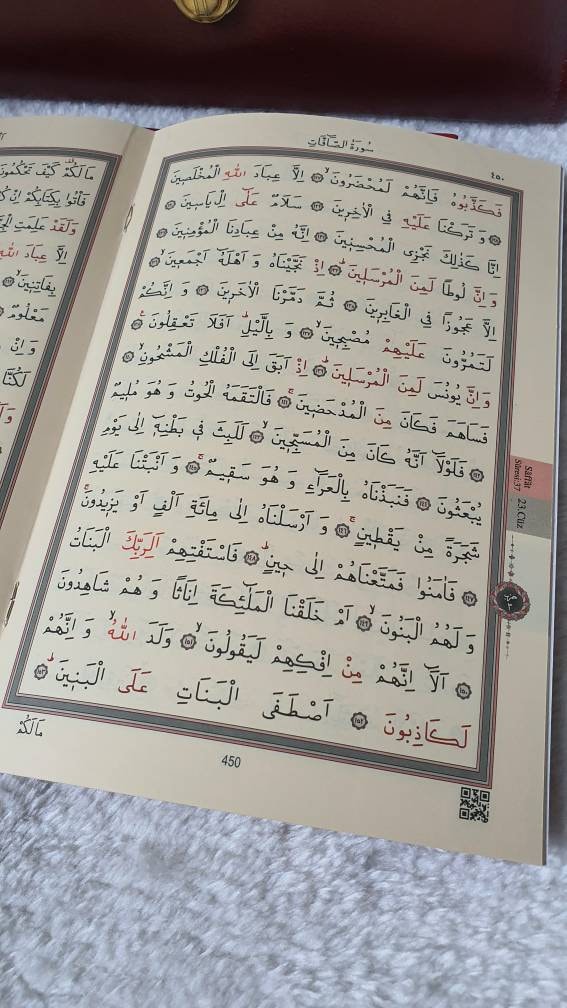 سُورَةُ الصَّٓافَّاتِ
٤٥٠
فَكَذَّبُوهُ فَاِنَّهُمْ لَمُحْضَرُونَۙ ﴿١٢٧﴾ اِلَّا عِبَادَ اللّٰهِ الْمُخْلَص۪ينَ
﴿١٢٨﴾ وَتَرَكْنَا عَلَيْهِ فِي الْاٰخِر۪ينَۙ ﴿١٢٩﴾ سَلَامٌ عَلٰٓى اِلْ يَاس۪ينَ ﴿١٣٠﴾
اِنَّا كَذٰلِكَ نَجْزِي الْمُحْسِن۪ينَ ﴿١٣١﴾ اِنَّهُ مِنْ عِبَادِنَا الْمُؤْمِن۪ينَ ﴿١٣٢﴾
وَاِنَّ لُوطًا لَمِنَ الْمُرْسَل۪ينَۜ ﴿١٣٣﴾ اِذْ نَجَّيْنَاهُ وَاَهْلَهُٓ اَجْمَع۪ينَۙ ﴿١٣٤﴾
اِلَّا عَجُوزًا فِي الْغَابِر۪ينَ ﴿١٣٥﴾ ثُمَّ دَمَّرْنَا الْاٰخَر۪ينَ ﴿١٣٦﴾ وَاِنَّكُمْ
لَتَمُرُّونَ عَلَيْهِمْ مُصْبِح۪ينَۙ ﴿١٣٧﴾ وَبِالَّيْلِۜ اَفَلَا تَعْقِلُونَ۟ ﴿١٣٨﴾
وَاِنَّ يُونُسَ لَمِنَ الْمُرْسَل۪ينَۜ ﴿١٣٩﴾ اِذْ اَبَقَ اِلَى الْفُلْكِ الْمَشْحُونِۙ ﴿١٤٠﴾
فَسَاهَمَ فَكَانَ مِنَ الْمُدْحَض۪ينَۚ ﴿١٤١﴾ فَالْتَقَمَهُ الْحُوتُ وَهُوَ مُل۪يمٌ
﴿١٤٢﴾ فَلَوْلَٓا اَنَّهُ كَانَ مِنَ الْمُسَبِّح۪ينَۙ ﴿١٤٣﴾ لَلَبِثَ ف۪ي بَطْنِه۪ٓ اِلٰى يَوْمِ
يُبْعَثُونَ ﴿١٤٤﴾ فَنَبَذْنَاهُ بِالْعَرَٓاءِ وَهُوَ سَق۪يمٌۚ ﴿١٤٥﴾ وَاَنْبَتْنَا عَلَيْهِ
شَجَرَةً مِنْ يَقْط۪ينٍۚ ﴿١٤٦﴾ وَاَرْسَلْنَاهُ اِلٰى مِائَةِ اَلْفٍ اَوْ يَز۪يدُونَۚ
﴿١٤٧﴾ فَاٰمَنُوا فَمَتَّعْنَاهُمْ اِلٰى ح۪ينٍۜ ﴿١٤٨﴾ فَاسْتَفْتِهِمْ اَلِرَبِّكَ الْبَنَاتُ
وَلَهُمُ الْبَنُونَۙ ﴿١٤٩﴾ اَمْ خَلَقْنَا الْمَلٰٓئِكَةَ اِنَاثًا وَهُمْ شَاهِدُونَ
﴿١٥٠﴾ اَلَٓا اِنَّهُمْ مِنْ اِفْكِهِمْ لَيَقُولُونَۙ ﴿١٥١﴾ وَلَدَ اللّٰهُۙ وَاِنَّهُمْ
لَكَاذِبُونَ ﴿١٥٢﴾ اَصْطَفَى الْبَنَاتِ عَلَى الْبَن۪ينَۜ ﴿١٥٣﴾
مَالَكُمْ
450
Sâffât
Sûresi:37
23.Cüz
مَا لَكُمْ كَيْفَ تَحْكُمُونَ
فَأْتُوا بِكِتَابِكُمْ
وَلَقَدْ عَلِمَتِ
اِلَّا عِبَادَ اللّٰهِ
بِفَاتِن۪ينَۙ
مَعْلُومٌ
وَاِنْ